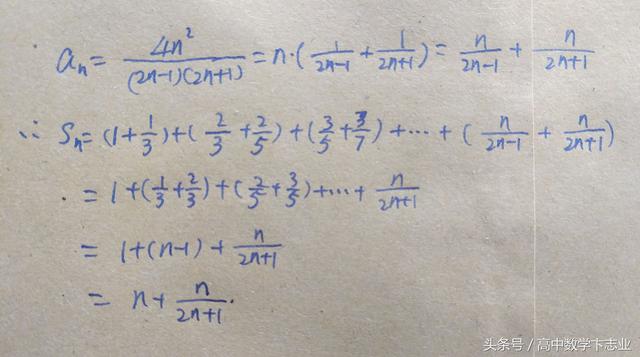 ∵ aₙ = 4n²/((2n-1)(2n+1)) = n·(1/(2n-1) + 1/(2n+1)) = n/(2n-1) + n/(2n+1)
∴ Sₙ = (1+1/3)+(2/3+2/5)+(3/5+3/7)+⋯+(n/(2n-1) + n/(2n+1))
= 1+(1/3+2/3)+(2/5+3/5)+⋯+n/(2n+1)
= 1+(n-1)+n/(2n+1)
= n+n/(2n+1).
头条号 / 高中数学卞志业